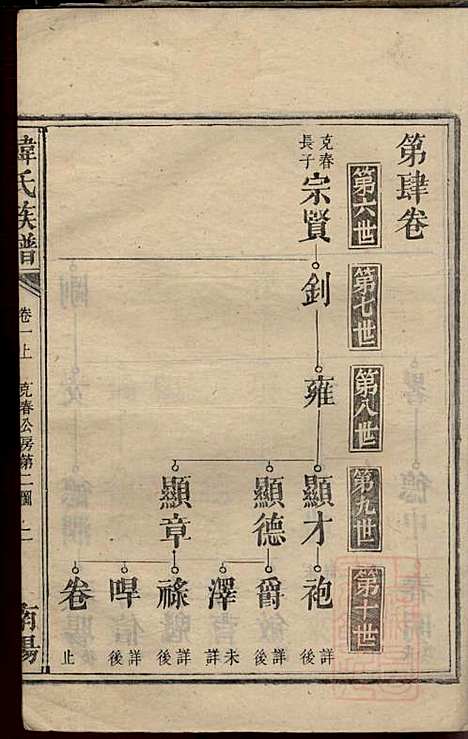 第肆卷
第六世
第七世
第八世
第九世
第十世
克春
長子
宗賢
釗
雍
顯才
顯德
顯章
袍
詳後
爵
詳後
澤
未詳
祿
詳後
哻
詳後
卷
止
韓氏族譜
卷一上
克春公房第二圖
南陽